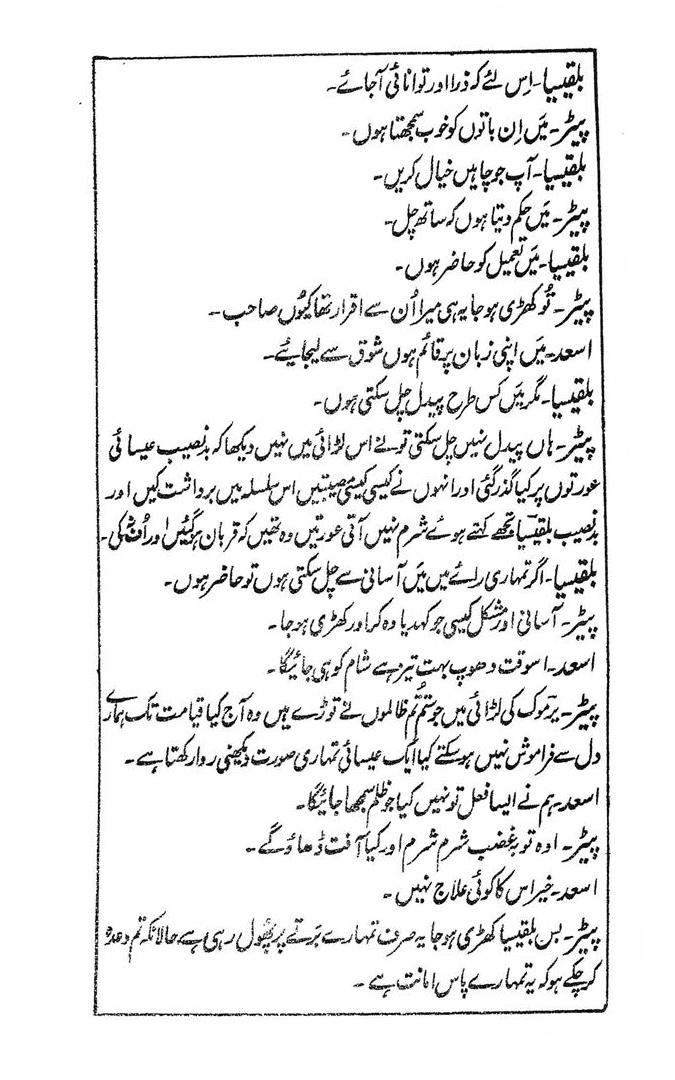 بلقیسیا۔ اِس لئے کہ ذرا اور توانائی آجائے۔
پیٹر۔ میَں اِن باتوں کو خوب سمجھتا ہوں۔
بلقیسیا۔ آپ جو چاہیں خیال کریں۔
پیٹر۔ میَں حکم دیتا ہوں کہ ساتھ چل۔
بلقیسیا۔ میَں تعمیل کو حاضر ہوں۔
پیٹر۔ تُو کھڑی ہو جا یہ ہی میرا اُن سے اقرار تھا کیوُں صاحب۔
اسعد۔ میَں اپنی زبان پر قائم ہوں شوق سے لیجائیے۔
بلقیسیا۔ مگر میَں کس طرح پیدل چل سکتی ہوں۔
پیٹر۔ ہاں پیدل نہیں چل سکتی تو نے اس لڑائی میں نہیں دیکھا کہ بدنصیب عیسائی
عورتوں پر کیا گذر گئی اور انہوں نے کیسی کیسی مصیبتیں اس سلسلہ میں برداشت کیں اور
بدنصیب بلقیسیا تجھے کہتے ہوئے شرم نہیں آتی عورتیں وہ تھیں کہ قربان ہوگئیں اور اُف نہ کی۔
بلقیسیا۔ اگر تمہاری رائے میں میں آسانی سے چل سکتی ہوں تو حاضر ہوں۔
پیٹر۔ آسانی اور مشکل کیسی جو کہدیا وہ کر اور کھڑی ہو جا۔
اسعد۔ اسوقت دھوپ بہت تیز ہے شام کو ہی جائیگا۔
پیٹر۔ یرموک کی لڑائی میں جو ستم تم ظالموں نے توڑے ہیں وہ آج کیا قیامت تک ہمارے
دل سے فراموش نہیں ہو سکتے کیا ایک عیسائی تمہاری صورت دیکھنی روا رکھتا ہے۔
اسعد۔ ہم نے ایسا فعل تو نہیں کیا جو ظلم سمجھا جائیگا۔
پیٹر۔ اوہ توبہ غضب شرم شرم اور کیا آفت ڈھاؤگے۔
اسعد۔ خیر اس کا کوئی علاج نہیں۔
پیٹر۔ بس بلقیسیا کھڑی ہو جا یہ صرف تمہارے برتے پر پھُول رہی ہے حالانکہ تم وعدہ
کر چکے ہو کہ یہ تمہارے پاس امانت ہے۔